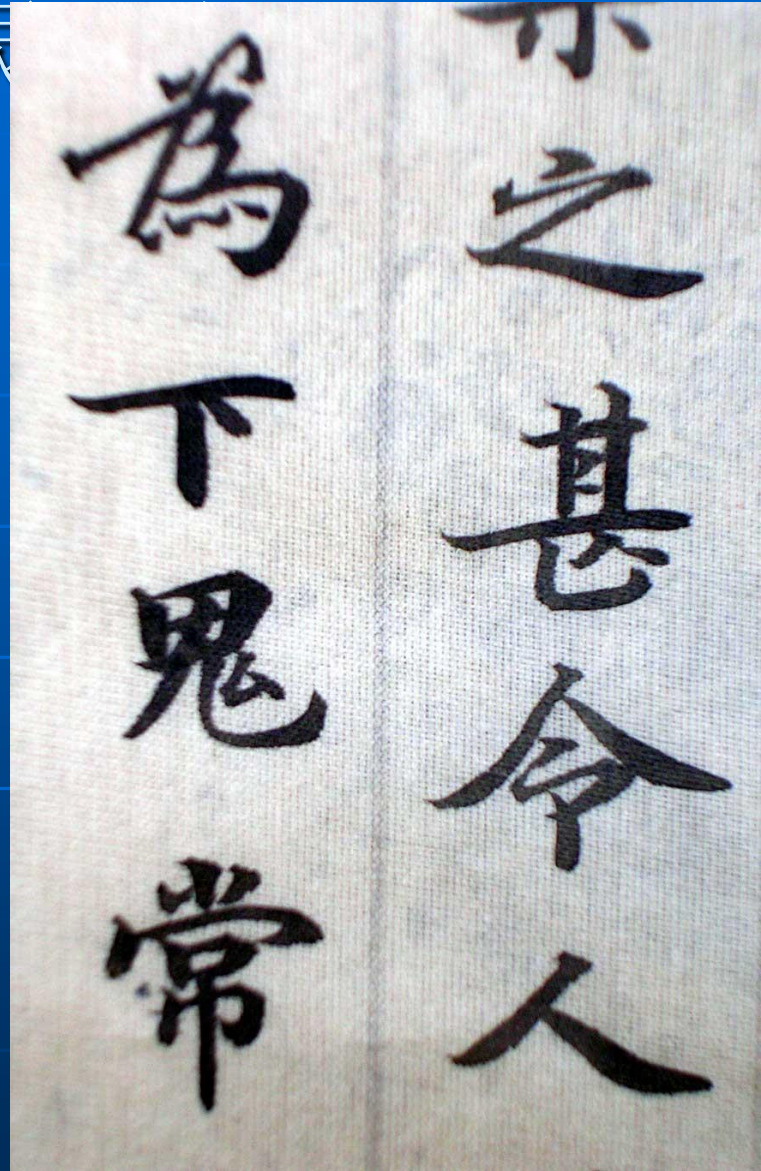 之甚令人
為下鬼常